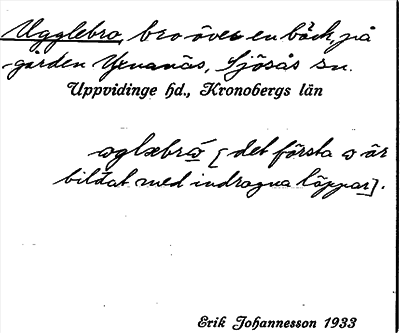 Ugglebro, bro över en bäck, på
gården Yxnanäs, Sjösås sn.
Uppvidinge hd., Kronobergs län
ɷglæbrɷ̄ [det första ɷ är
bildat med indragna läppar].
Erik Johannesson 1933